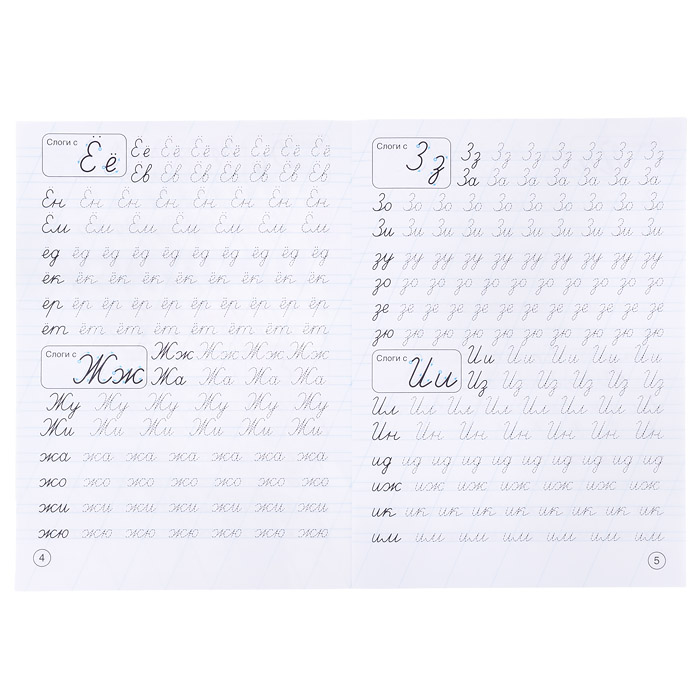 Слоги с Ё ё
Ёё Ёё Ёё Ёё Ёё Ёё Ёё
Ёв Ёв Ёв Ёв Ёв Ёв Ёв
Ён Ён Ён Ён Ён Ён Ён Ён
Ём Ём Ём Ём Ём Ём Ём
ёд ёд ёд ёд ёд ёд ёд ёд ёд ёд
ёк ёк ёк ёк ёк ёк ёк ёк ёк
ёр ёр ёр ёр ёр ёр ёр ёр ёр ёр
ёт ёт ёт ёт ёт ёт ёт ёт
Слоги с Жж
Жж Жж Жж Жж Жж
Жа Жа Жа Жа Жа
Жу Жу Жу Жу Жу Жу
Жи Жи Жи Жи Жи Жи
жа жа жа жа жа жа жа
жо жо жо жо жо жо жо
жи жи жи жи жи жи жи
жю жю жю жю жю жю жю
4
Слоги с З з
Зз Зз Зз Зз Зз Зз Зз
За За За За За За За
Зо Зо Зо Зо Зо Зо Зо Зо Зо
Зи Зи Зи Зи Зи Зи Зи Зи Зи
зу зу зу зу зу зу зу зу зу зу
зо зо зо зо зо зо зо зо зо зо
зе зе зе зе зе зе зе зе зе зе зе
зю зю зю зю зю зю зю зю зю
Слоги с Ии
Ии Ии Ии Ии Ии
Из Из Из Из Из Из
Ил Ил Ил Ил Ил Ил Ил Ил
Ин Ин Ин Ин Ин Ин Ин
ид ид ид ид ид ид ид ид ид ид
иж иж иж иж иж иж иж
ик ик ик ик ик ик ик ик ик
им им им им им им им
5